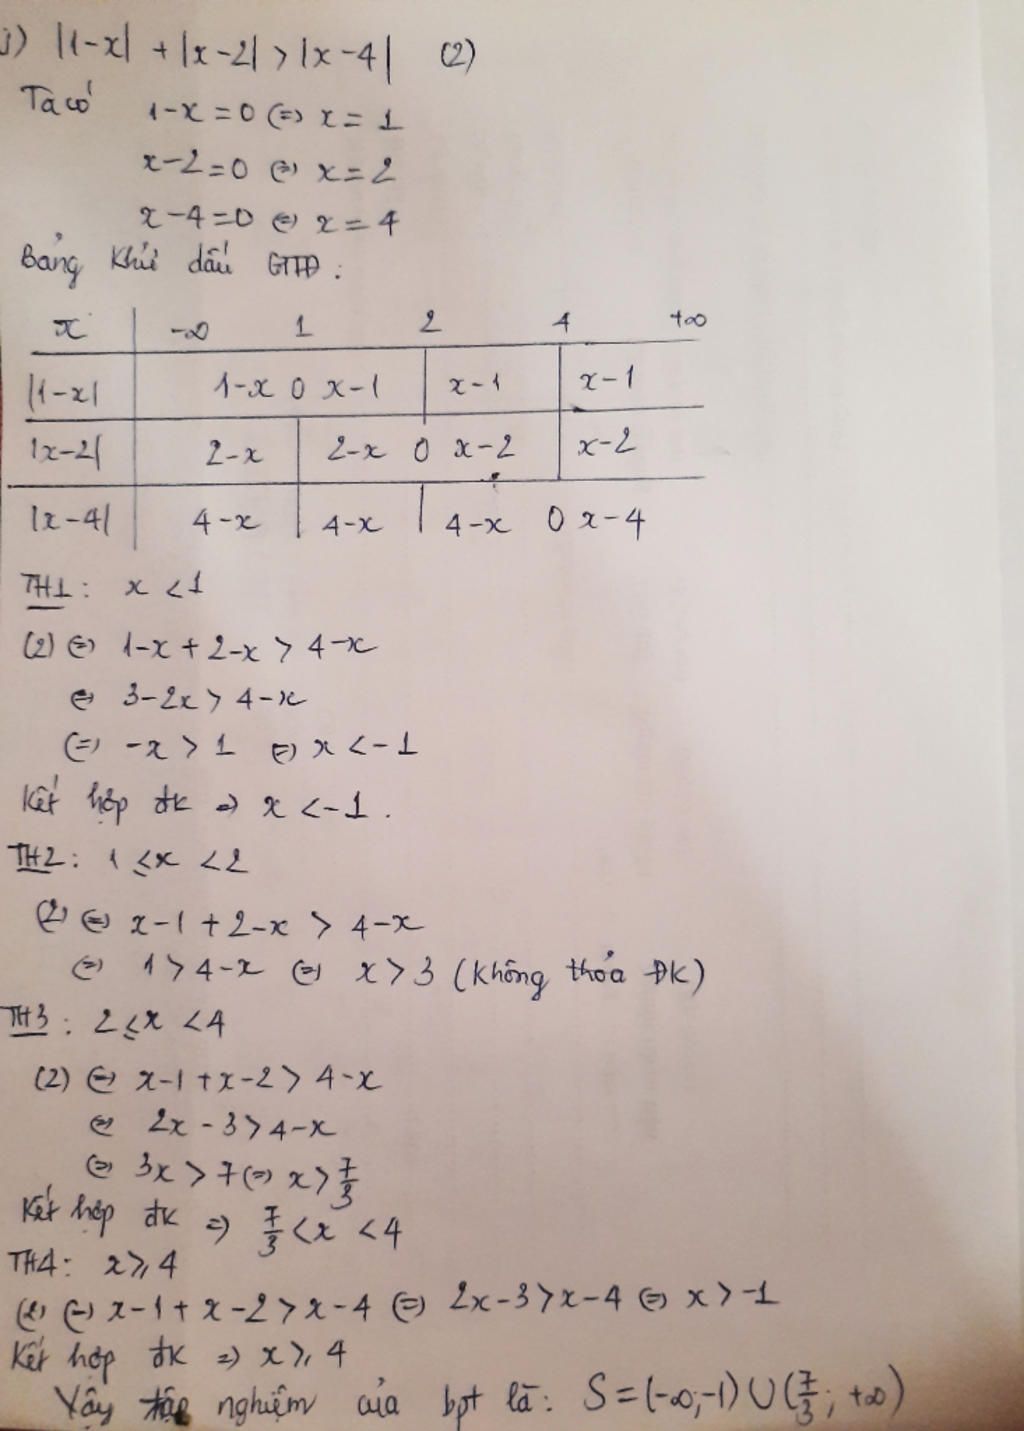 j) |1-x| + |x-2| > |x-4| (2)
Ta có 1-x = 0 (=) x = 1
x-2=0 (=) x = 2
x-4=0 (=) x = 4
Bảng khử dấu GTTĐ :
x -∞ 1 2 4 +∞
|1-x| 1-x 0 x-1 x-1 x-1
|x-2| 2-x 2-x 0 x-2 x-2
|x-4| 4-x 4-x 4-x 0 x-4
TH1: x < 1
(2) (=) 1-x + 2-x > 4-x
(=) 3-2x > 4-x
(=) -x > 1 (=) x < -1
Kết hợp đk => x < -1 .
TH2: 1 ≤ x < 2
(2) (=) x-1 + 2-x > 4-x
(=) 1 > 4-x (=) x > 3 (không thỏa ĐK)
TH3 : 2 ≤ x < 4
(2) (=) x-1 + x-2 > 4-x
(=) 2x - 3 > 4-x
(=) 3x > 7 (=) x > 7/3
Kết hợp đk => 7/3 < x < 4
TH4: x ≥ 4
(2) (=) x-1 + x-2 > x-4 (=) 2x-3 > x-4 (=) x > -1
Kết hợp đk => x ≥ 4
Vậy tập nghiệm của bpt là: S = (-∞;-1) ∪ (7/3; +∞)